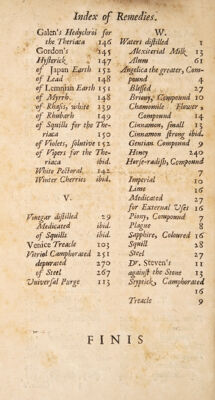 Index of Remedies.
Galen's Hedychroi for
the Theriaca 146
Gordon's 145
Hysterick 147
of Japan Earth 152
of Lead 150
of Lemnian Earth 151
of Myrrh 148
of Rhasis, white 139
of Rhubarb 149
of Squills for the The-
riaca 150
of Violets, solutive 152
of Vipers for the The-
riaca ibid.
White Pectoral 142
Winter Cherries ibid.
V.
Vinegar distilled 29
Medicated ibid.
of Squills ibid.
Venice Treacle 103
Vitriol Camphorated 251
depurated 270
of Steel 267
Universal Purge 113
W.
Waters distilled 1
Alexiterial Milk 13
Alum 61
Angelica the greater, Com-
pound 4
Blessed 27
Briony, Compound 10
Chamomile Flower
Compound 14
Cinnamon, small 13
Cinnamon strong ibid.
Gentian Compound 9
Honey 240
Horse-radish, Compound
7
Imperial 10
Lime 16
Medicated
for External Uses 16
Piony, Compound 7
Plague 8
Sapphire, Coloured 16
Squill 28
Steel 27
Dr. Steven's 11
against the Stone 13
Styptick, Camphorated
16
Treacle 9
FINIS